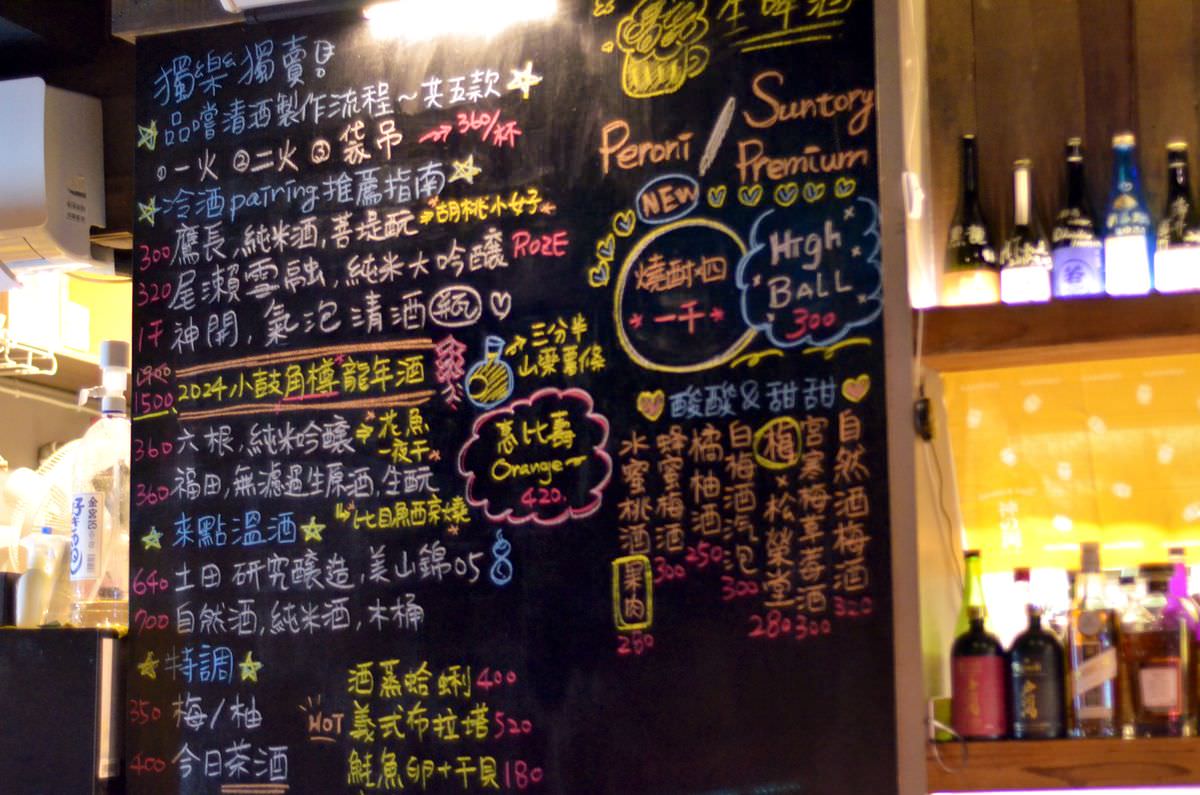 獨樂獨賣!
品嚐清酒製作流程~共五款
①一火 ②二火 ③袋吊 → 360/杯
冷酒pairing推薦指南
300 鷹長,純米酒,菩提酛 → 胡桃小女子
320 尾瀨雪融,純米大吟釀 ROZE
1千 神開,氣泡清酒 瓶
1900
1500 2024小鼓角樽龍年酒
→ 三分半
山藥薯條
360 六根,純米吟釀 → 花魚
一夜干
360 福田,無濾過生原酒,生酛
比目魚西京燒
來點溫酒
640 土田研究釀造,美山錦05
700 自然酒,純米酒,木桶
特調
350 梅/柚
400 今日茶酒
惠比壽
Orange
420.
HOT
酒蒸蛤蜊 400
義式布拉塔 520
鮭魚卵+干貝 180
生啤酒
Peroni
Suntory
Premium
NEW
燒酎
一千
High
BALL
300
酸酸&甜甜
自然酒梅酒 320
宮寒梅草莓酒 300
梅×松榮堂 280
白梅酒汽泡 300
橘柚酒 250
蜂蜜梅酒 300
水蜜桃酒 果肉 280